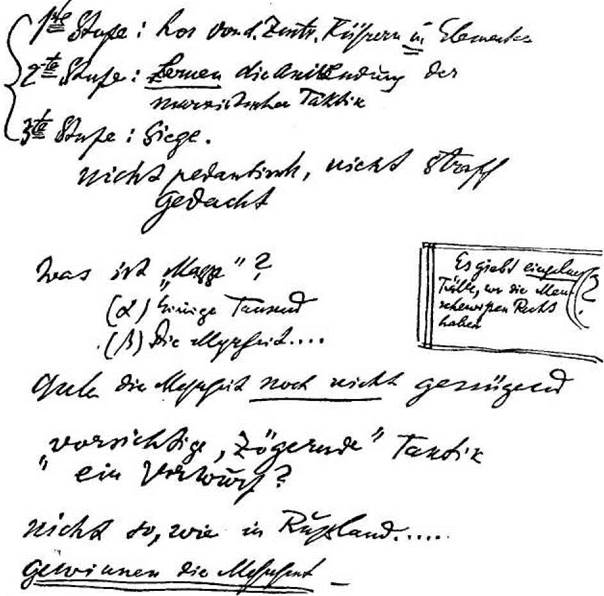 1te Stufe: los von d. Zentr. Führern in Elementen
2te Stufe: Lernen die Anwendung der
marxistischen Taktik
3te Stufe: Siege.
nicht pedantisch, nicht straff
gedacht
was ist „Masse"?
(α) Einige Tausend
(β) Die Mehrheit....
Es giebt einzelne
Fälle, wo die Men-
schewiken Recht
haben
(?
die Mehrheit noch nicht genügend
„vorsichtige, zögernde" Taktik
ein Vorwurf?
nicht so, wie in Rußland.....
gewinnen die Mehrheit –